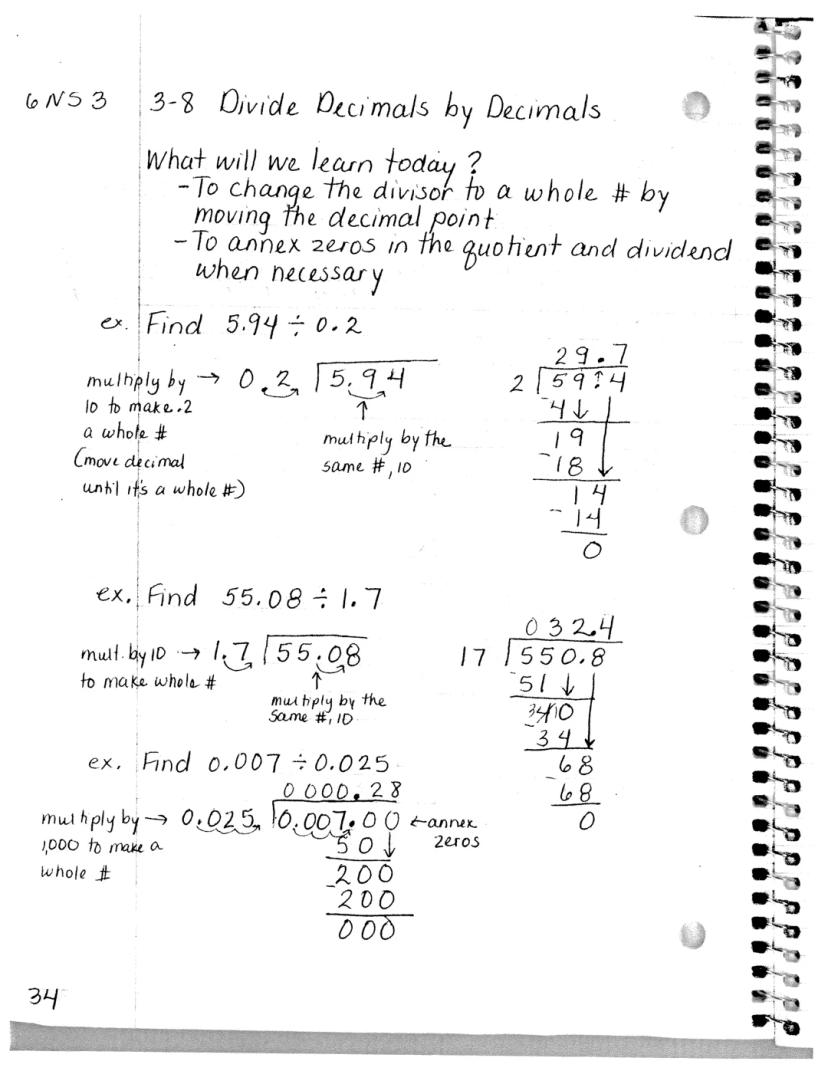 6NS3 3-8 Divide Decimals by Decimals
What will we learn today?
- To change the divisor to a whole # by
moving the decimal point
- To annex zeros in the quotient and dividend
when necessary
ex. Find 5.94 ÷ 0.2
multiply by → 0.2 ⟌5.94
10 to make .2
a whole #
(move decimal
until it's a whole #)
↑
multiply by the
same #, 10
29.7
2 ⟌59.4
-4↓
19
-18
14
-14
0
ex. Find 55.08 ÷ 1.7
mult. by 10 → 1.7 ⟌55.08
to make whole #
↑
multiply by the
same #, 10
032.4
17 ⟌550.8
-51↓
3410
-34
68
-68
0
ex. Find 0.007 ÷ 0.025
0000.28
multiply by → 0.025. ⟌0.007.00 ← annex
1,000 to make a
whole #
zeros
50↓
200
-200
000
34